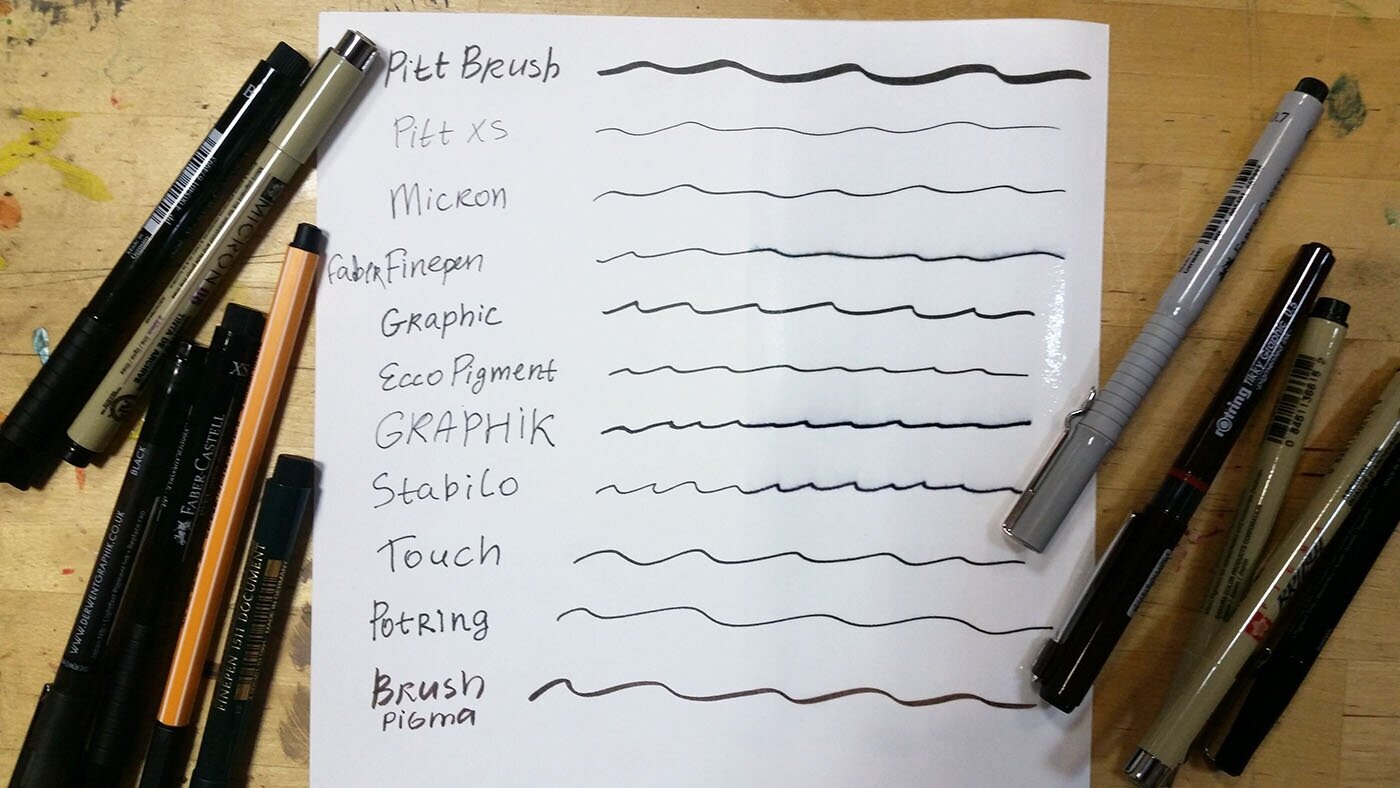 Pitt Brush
Pitt XS
Micron
Faber Finepen
Graphic
Ecco Pigment
GRAPHIK
Stabilo
Touch
Rotring
Brush
Pigma
B
MICRON 08
TINTA DE ARCHIVE
BLACK
WWW.DERWENTGRAPHIK.CO.UK
XS
FABER-CASTELL
FINEPEN 1511 DOCUMENT
MADE IN GERMANY
0.7
rotring Tikky Graphic